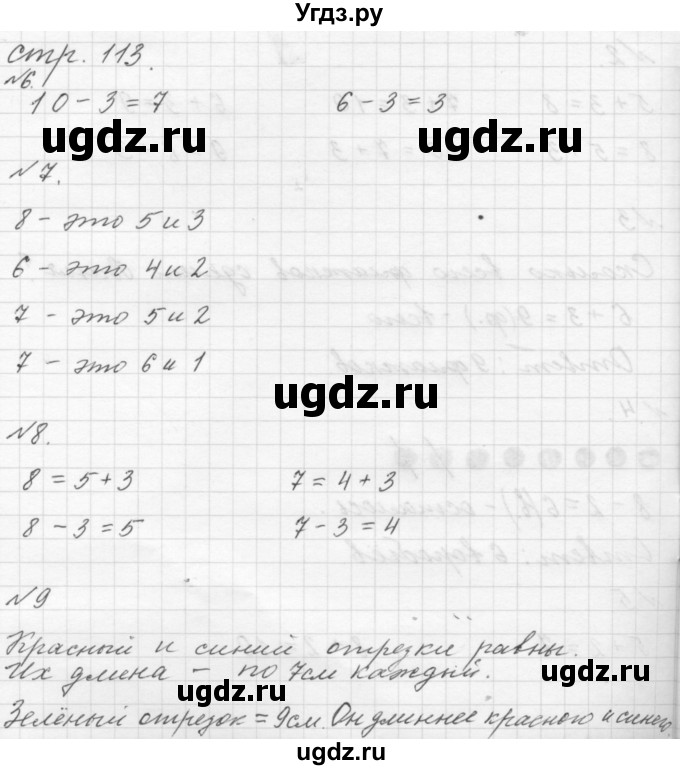 Угдз.ру
стр. 113.
№6.
10 - 3 = 7 6 - 3 = 3
ugdz.ru ugdz.ru
№7.
8 - это 5 и 3
6 - это 4 и 2
ugdz.ru
7 - это 5 и 2
7 - это 6 и 1
ugdz.ru
№8.
8 = 5 + 3 7 = 4 + 3
8 - 3 = 5 7 - 3 = 4
ugdz.ru
№9
Красный и синий отрезки равны.
Их длина - по 7см каждый.
ugdz.ru
ugdz.ru
Зелёный отрезок = 9см. Он длиннее красного и синего.
ugdz.ru